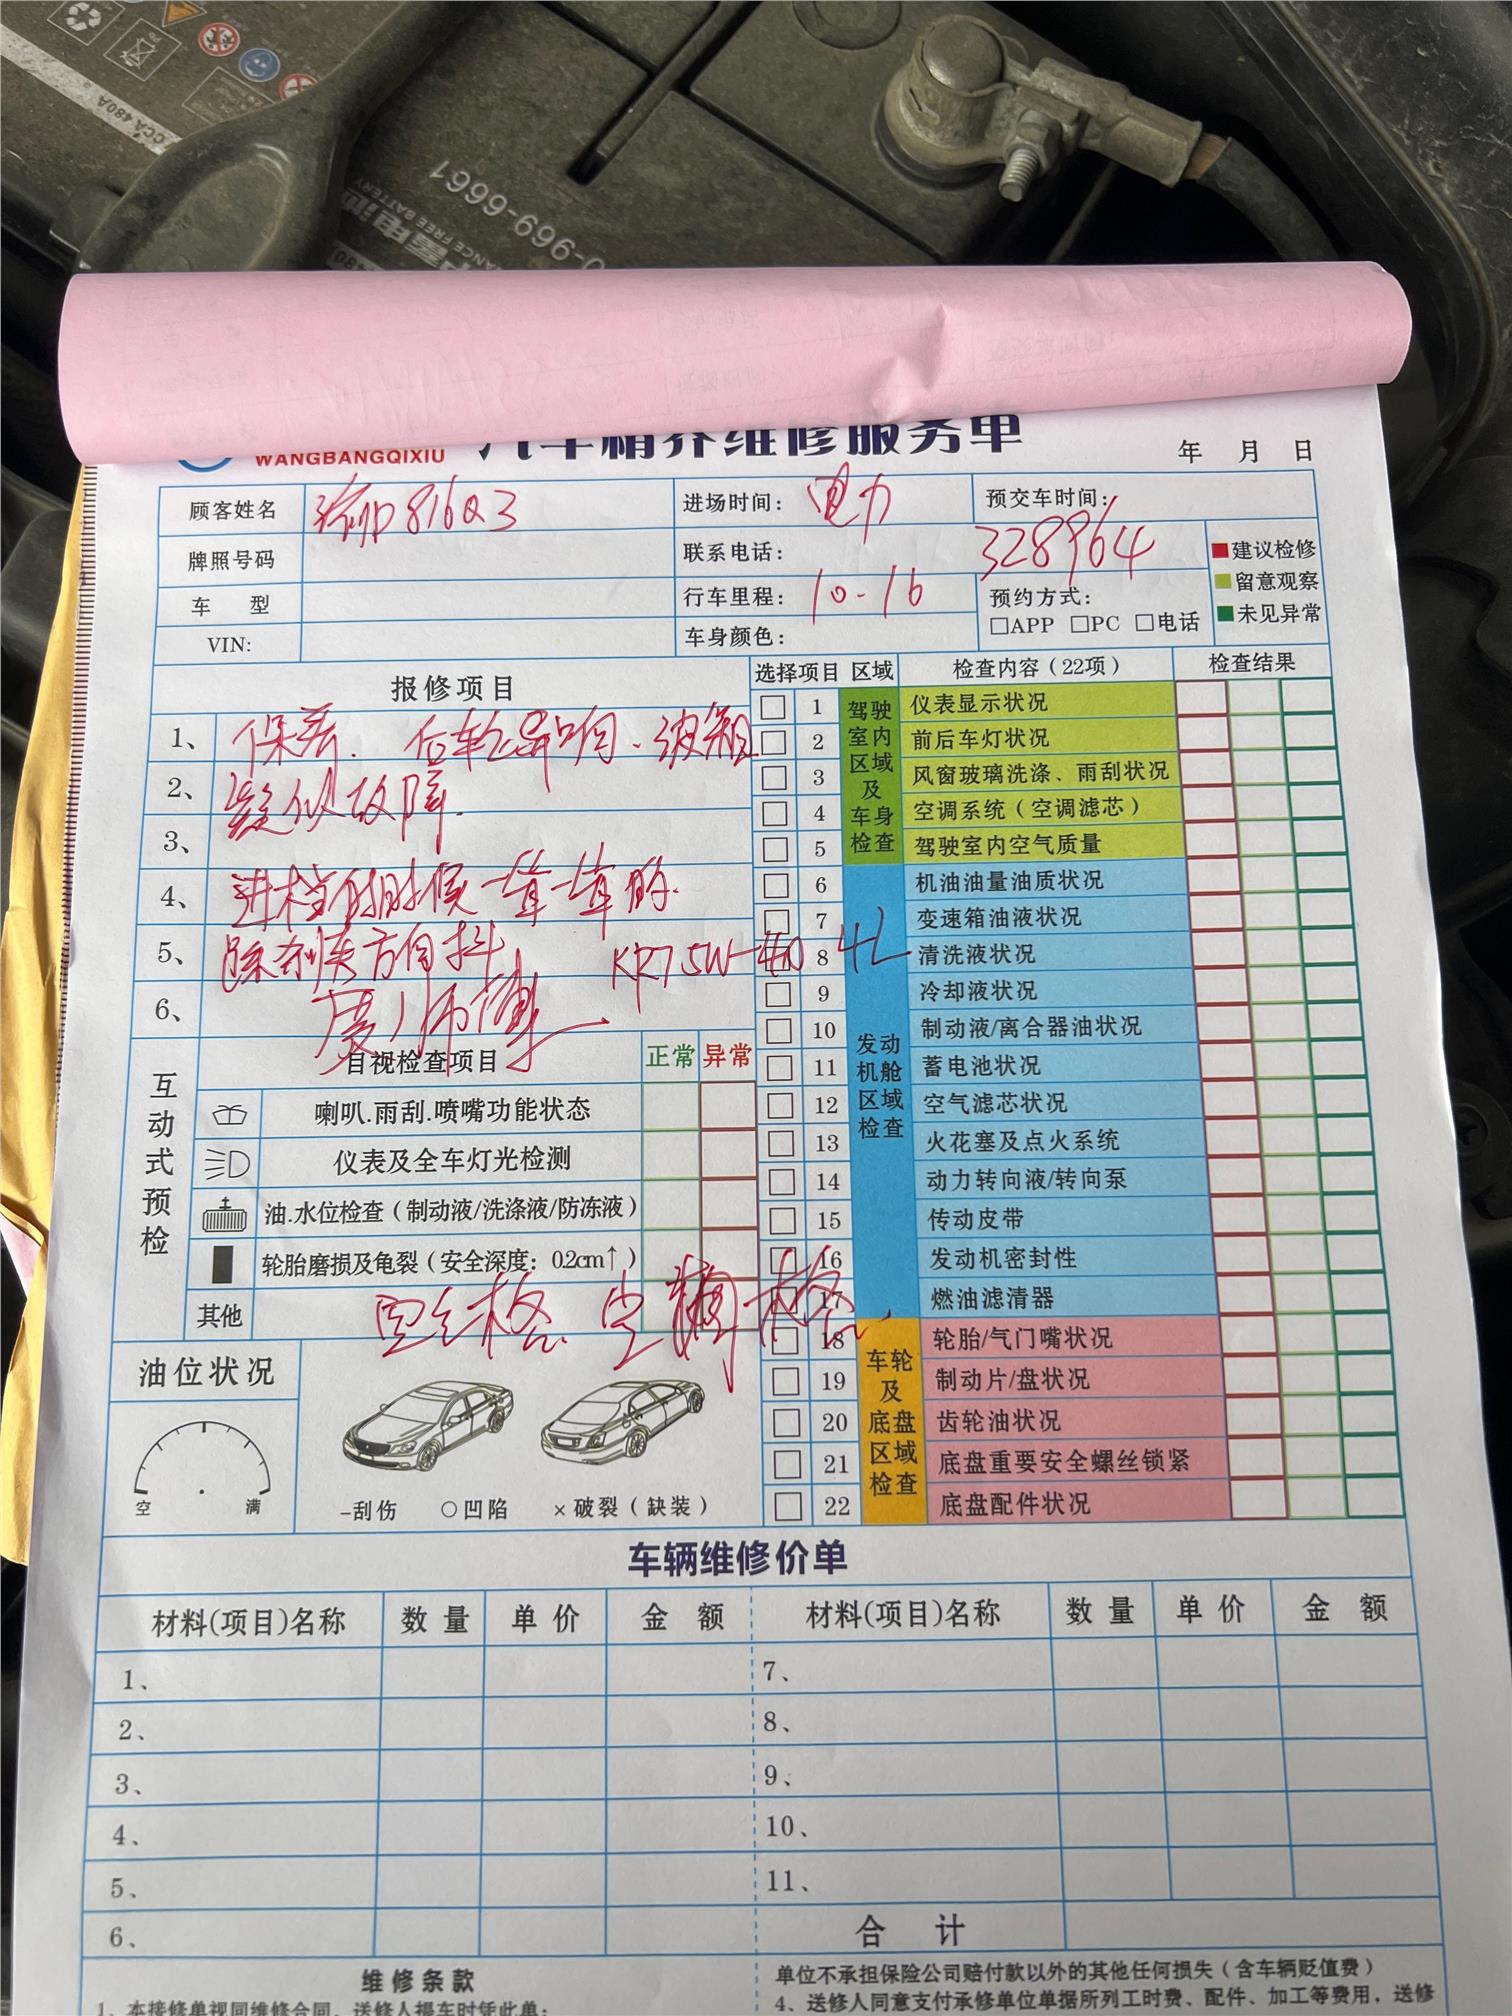 CCA 480A
0-969-6661
WANGBANGQIXIU 汽车精养维修服务单
年 月 日
顾客姓名 渝D816Q3 进场时间： 电力 预交车时间：
牌照号码 联系电话： 328964
■建议检修
车 型 行车里程： 10.16 预约方式：
■留意观察
□APP □PC □电话
■未见异常
VIN: 车身颜色：
报修项目
选择项目 区域 检查内容（22项） 检查结果
1、 保养. 后轮异响.波箱
2、 疑似故障.
3、
4、 进档的时候一耸一耸的.
5、 踩刹车方向抖 KR7 5W-40 4L
6、
驾驶室内区域及车身检查
1 仪表显示状况
2 前后车灯状况
3 风窗玻璃洗涤、雨刮状况
4 空调系统（空调滤芯）
5 驾驶室内空气质量
发动机舱区域检查
6 机油油量油质状况
7 变速箱油液状况
8 清洗液状况
9 冷却液状况
10 制动液/离合器油状况
11 蓄电池状况
12 空气滤芯状况
13 火花塞及点火系统
14 动力转向液/转向泵
15 传动皮带
16 发动机密封性
17 燃油滤清器
车轮及底盘区域检查
18 轮胎/气门嘴状况
19 制动片/盘状况
20 齿轮油状况
21 底盘重要安全螺丝锁紧
22 底盘配件状况
互动式预检
目视检查项目 正常 异常
喇叭.雨刮.喷嘴功能状态
仪表及全车灯光检测
油.水位检查（制动液/洗涤液/防冻液）
轮胎磨损及龟裂（安全深度：0.2cm↑）
其他
空气格. 空调格.
油位状况
空 满
-刮伤 ○凹陷 ×破裂（缺装）
车辆维修价单
材料(项目)名称 数量 单价 金 额 材料(项目)名称 数量 单价 金 额
1、 7、
2、 8、
3、 9、
4、 10、
5、 11、
6、 合 计
维修条款
1、本接修单视同维修合同，送修人提车时凭此单；
单位不承担保险公司赔付款以外的其他任何损失（含车辆贬值费）
4、送修人同意支付承修单位单据所列工时费、配件、加工等费用，送修